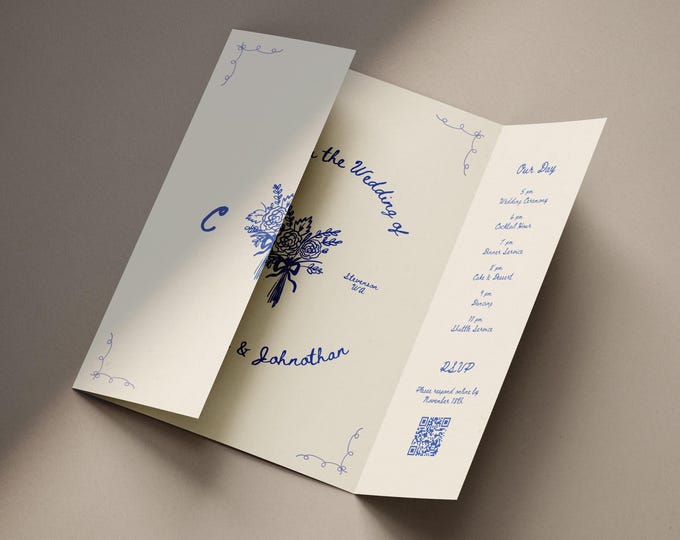 C
the Wedding of
Stevenson
WA
& Johnathan
Our Day
5 pm
Wedding Ceremony
6 pm
Cocktail Hour
7 pm
Dinner Service
8 pm
Cake & Dessert
9 pm
Dancing
10 pm
Shuttle Service
RSVP
Please respond online by
November 18th